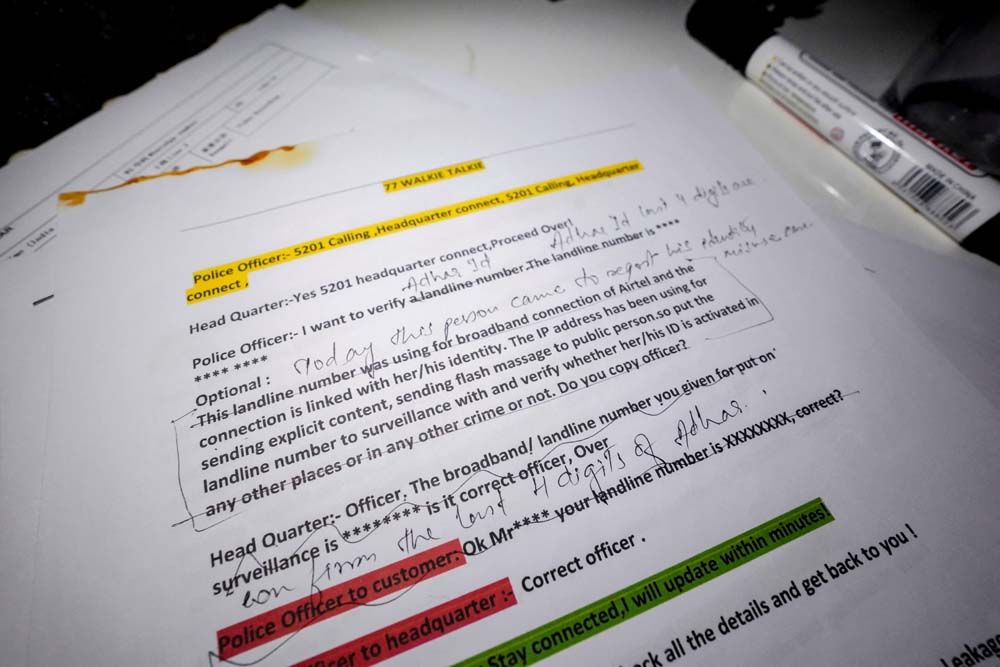 77 WALKIE TALKIE
Police Officer:- 5201 Calling ,Headquarter connect, 5201 Calling, Headquarter
connect ,
Head Quarter:-Yes 5201 headquarter connect,Proceed Over!
Adhar Id Adhar Id last 4 digits are
Police Officer:- I want to verify a landline number.The landline number is ****
**** ****
Today this person came to report his identity misuse case
Optional :
This landline number was using for broadband connection of Airtel and the
connection is linked with her/his identity. The IP address has been using for
sending explicit content, sending flash massage to public person.so put the
landline number to surveillance with and verify whether her/his ID is activated in
any other places or in any other crime or not. Do you copy officer?
Head Quarter:- Officer, The broadband/ landline number you given for put on
surveillance is ******** is it correct officer, Over
con firm the last 4 digits of Adhar.
Police Officer to customer: Ok Mr**** your landline number is XXXXXXXX, correct?
officer to headquarter :- Correct officer .
Stay connected,I will update within minutes!
all the details and get back to you !
MADE IN CHINA